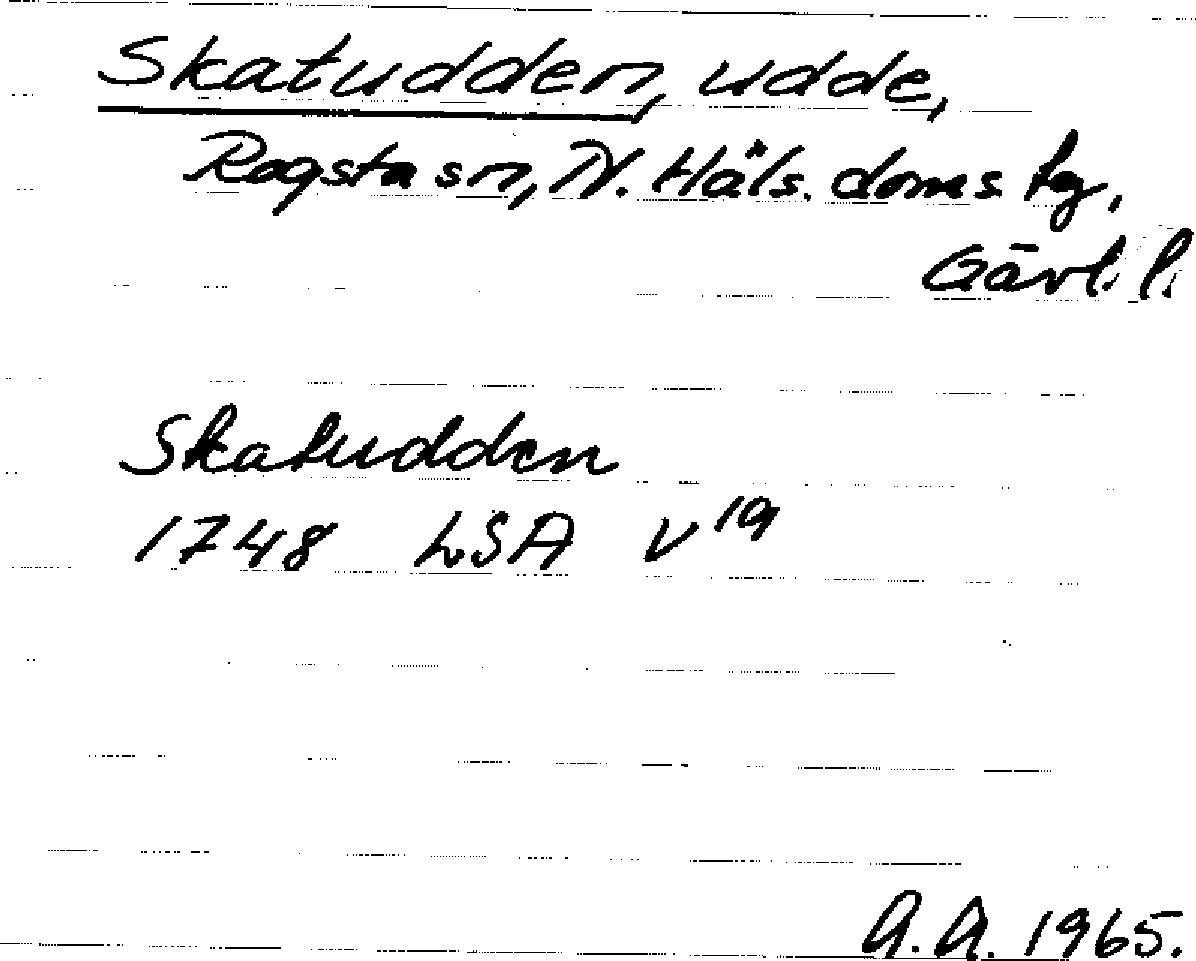 Skatudden, udde,
Rogsta sn, N. Häls. doms tg,
Gävl. l.
Skatudden
1748 LSA V 19
A.A. 1965.